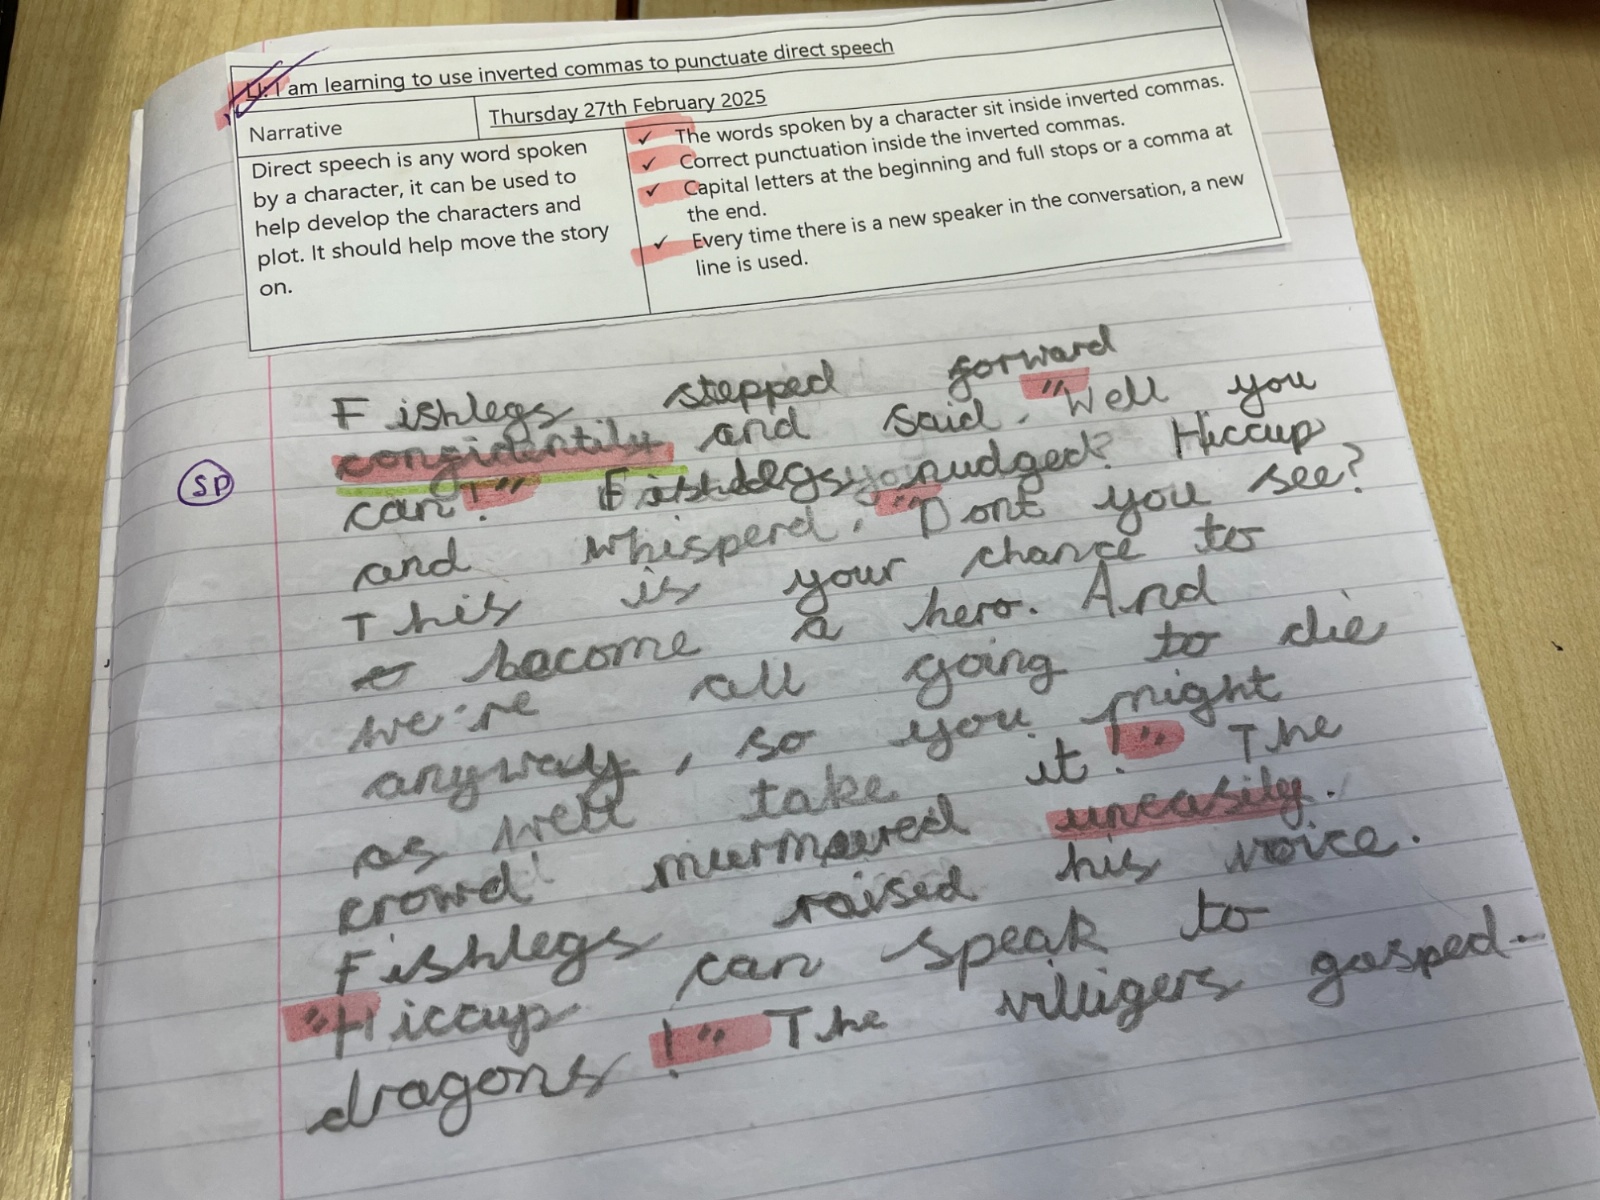 LI: I am learning to use inverted commas to punctuate direct speech
Narrative
Thursday 27th February 2025
Direct speech is any word spoken
by a character, it can be used to
help develop the characters and
plot. It should help move the story
on.
✓ The words spoken by a character sit inside inverted commas.
✓ Correct punctuation inside the inverted commas.
✓ Capital letters at the beginning and full stops or a comma at
the end.
✓ Every time there is a new speaker in the conversation, a new
line is used.
SP
Fishlegs stepped forward
confidentily and said. "Well you
can!" Fishlegs nudged? Hiccup
and whisperd, "Dont you see?
This is your chance to
become a hero. And
we're all going to die
anyway, so you might
as well take it!" The
crowd murmoured uneasily.
Fishlegs raised his voice.
"Hiccup can speak to
dragons!" The villigers gasped..